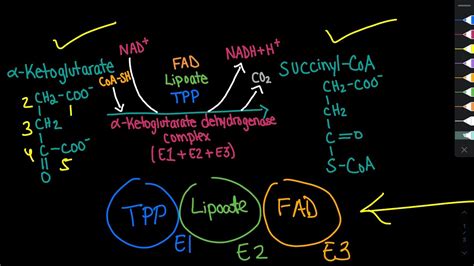 NAD⁺
FAD
NADH+H⁺
α-Ketoglutarate
CoA-SH
Lipoate
CO₂
Succinyl-CoA
TPP
2 CH₂-COO⁻
1
CH₂-COO⁻
3 CH₂
α-Ketoglutarate dehydrogenase
CH₂
complex
4 C-COO⁻
5
C=O
(E1+E2+E3)
O
S-CoA
TPP
Lipoate
FAD
E1
E2
E3